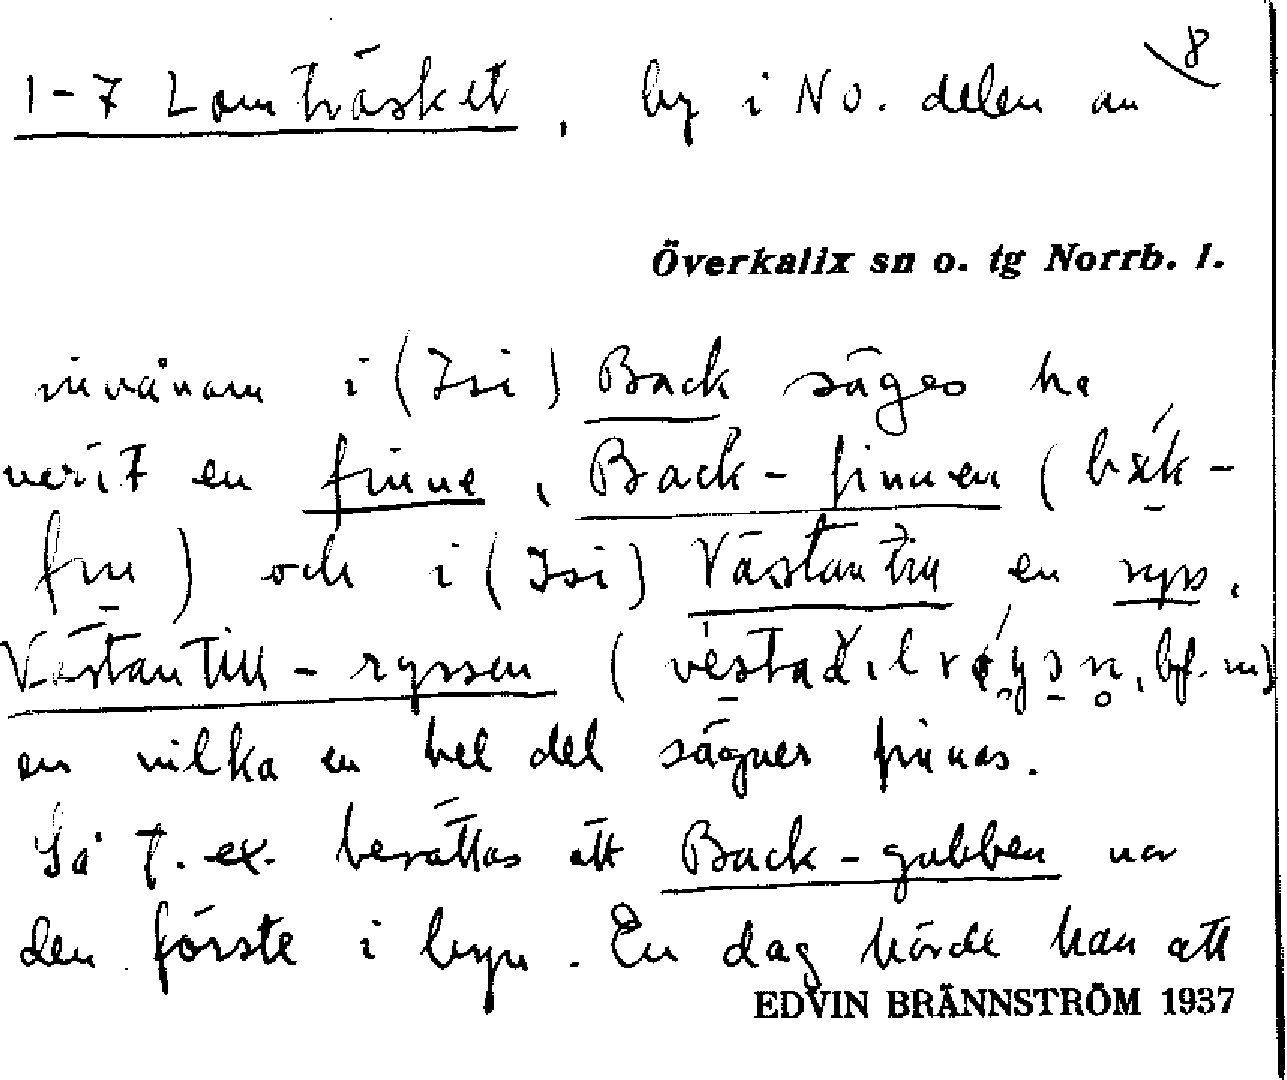 8
1-7 Lomträsket, by i NO. delen av
Överkalix sn o. tg Norrb. l.
invånare i (Isi) Back säges ha
varit en finne, Back-finnen (
) och i (Isi) Västantill en ryss,
Västantill-ryssen (
om vilka en hel del sägner finnas.
Så t. ex. berättas att Back-gubben var
den förste i byn. En dag hörde han att
EDVIN BRÄNNSTRÖM 1937